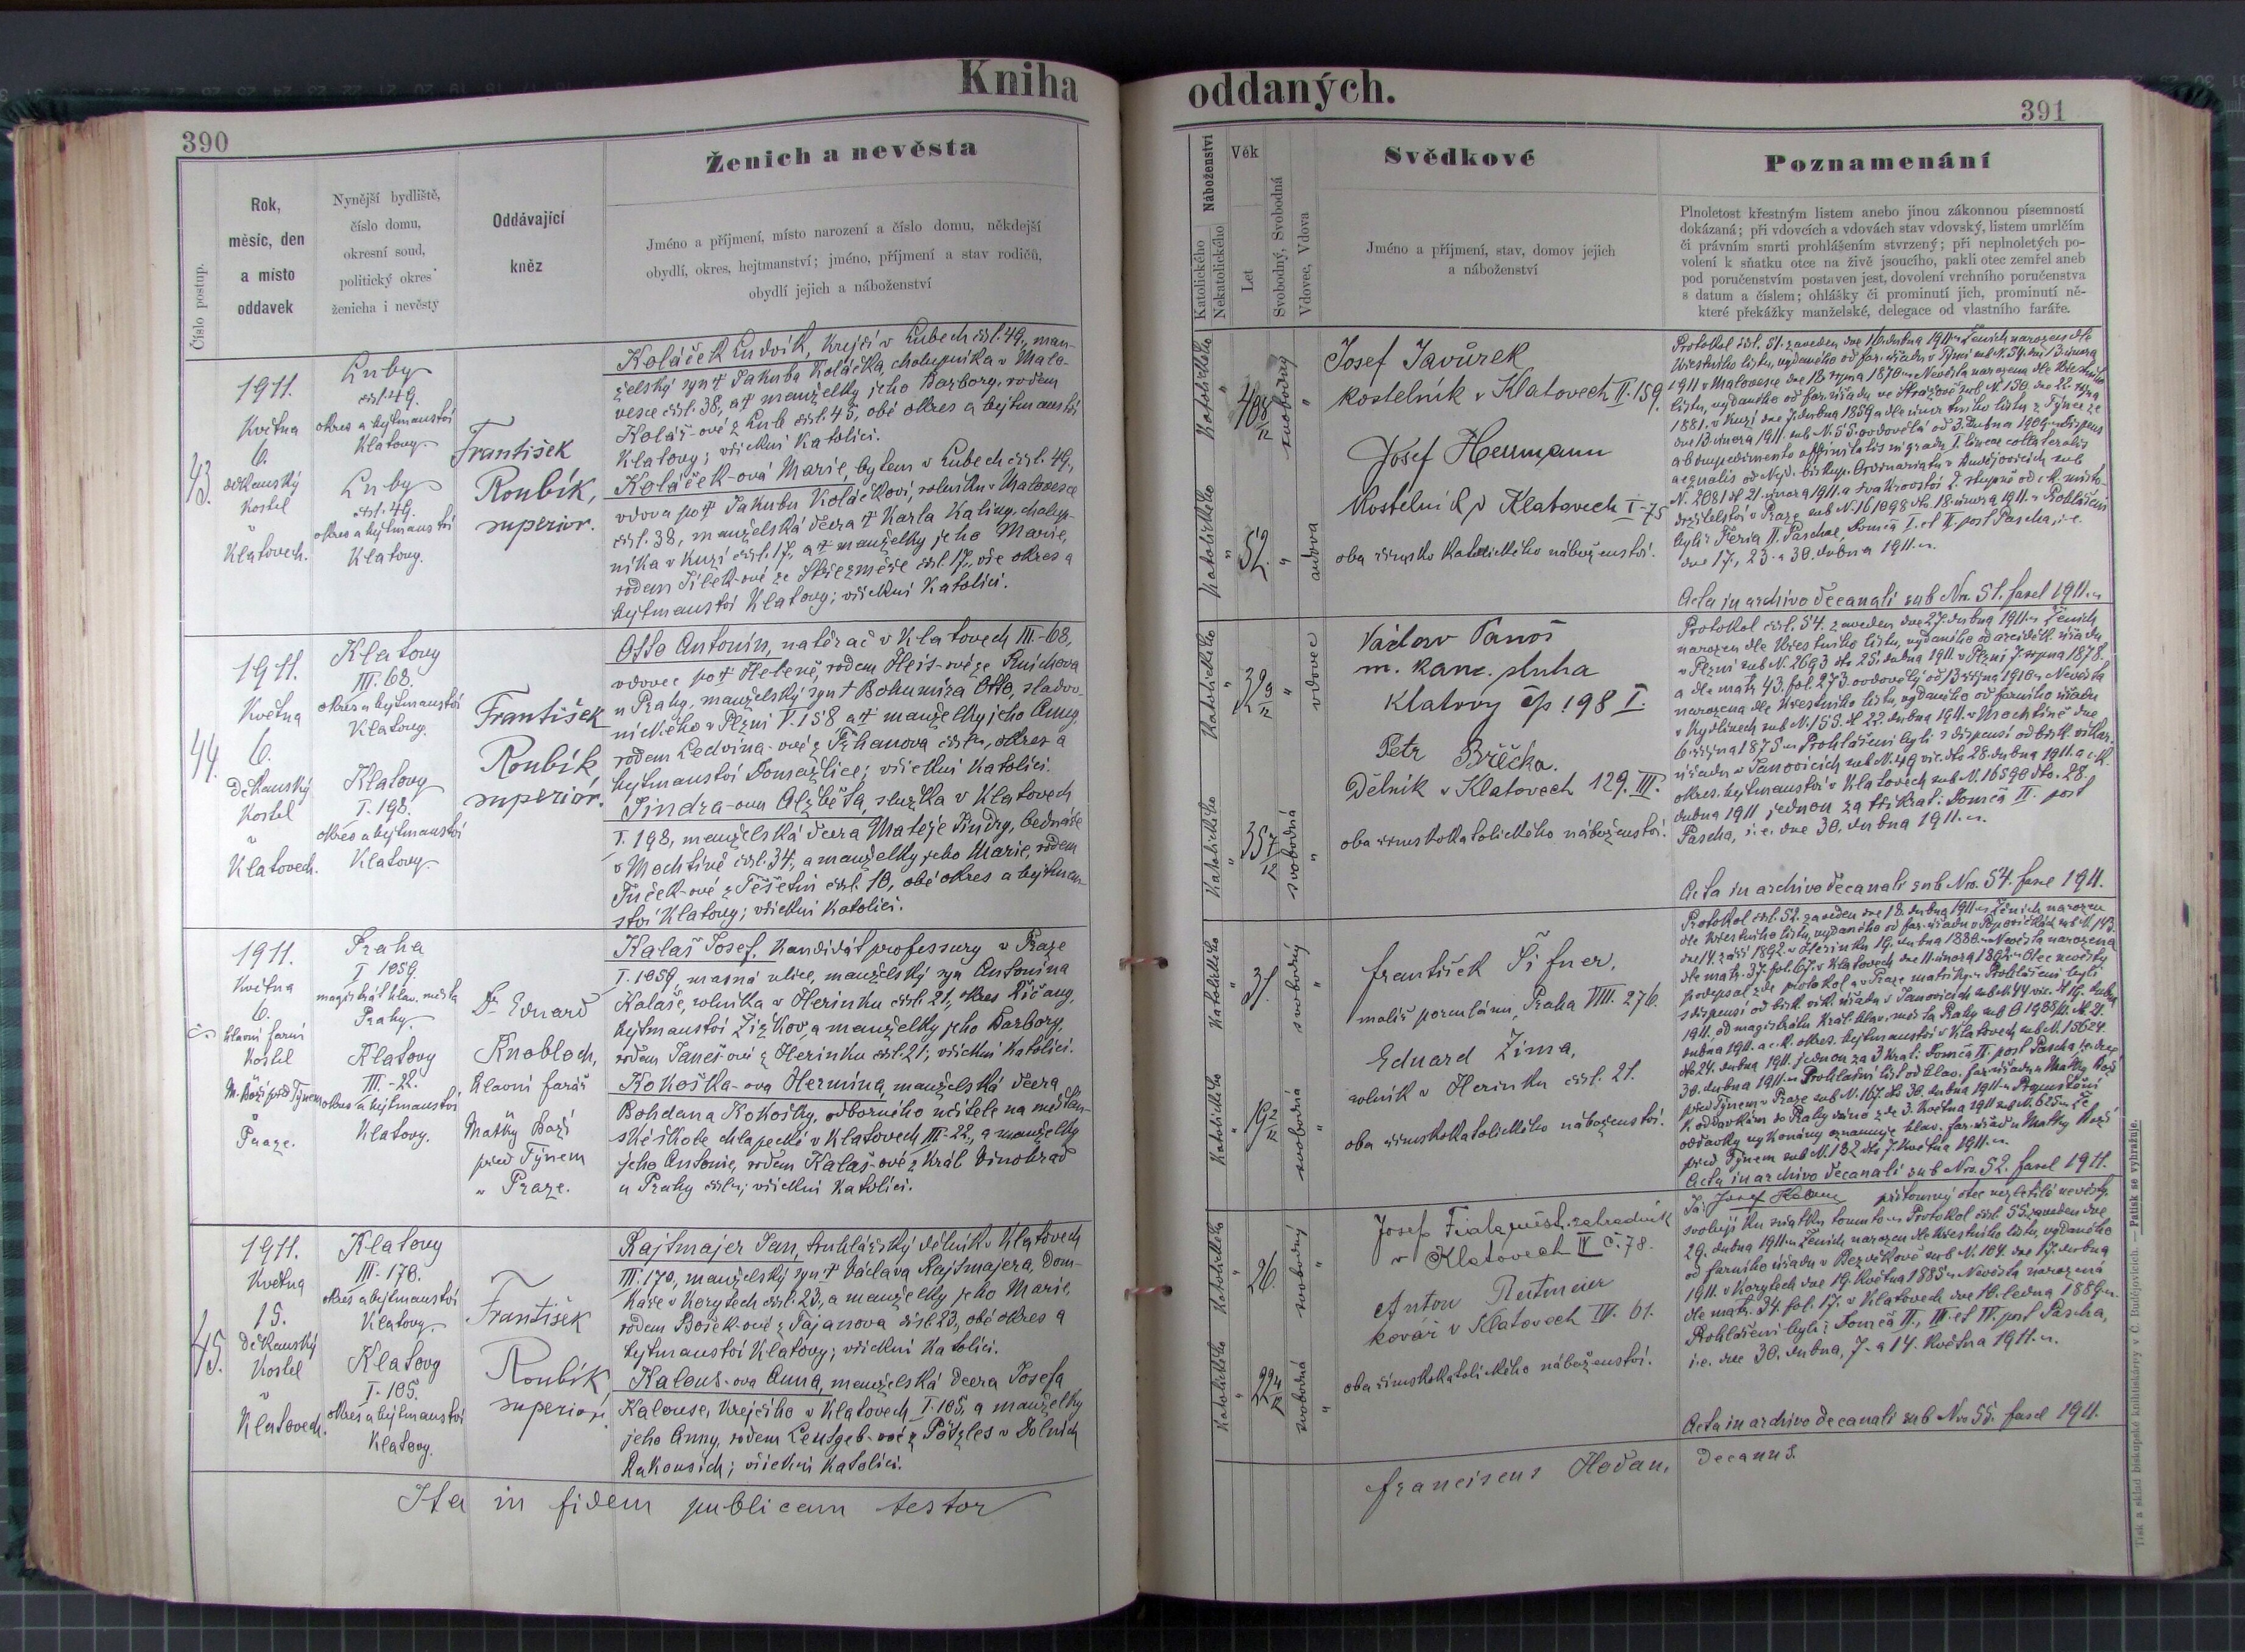 Kniha
oddaných.
390
391
Číslo postup.
Rok,
měsíc, den
a místo
oddavek
Nynější bydliště,
číslo domu,
okresní soud,
politický okres
ženicha i nevěsty
Oddávající
kněz
Ženich a nevěsta
Jméno a příjmení, místo narození a číslo domu, někdejší
obydlí, okres, hejtmanství; jméno, příjmení a stav rodičů,
obydlí jejich a náboženství
43.
1911.
Května
6.
děkanský
kostel
v
Klatovech.
Luby
čísl. 49.
okres a hejtmanství
Klatovy.
Luby
čísl. 49.
okres a hejtmanství
Klatovy.
František
Roubík,
superior.
Koláček Ludvík, krejčí v Lubech čísl. 49, man-
želský syn † Jakuba Koláčka, chalupníka v Malo-
vesce čísl. 38, a † manželky jeho Barbory, rodem
Kolář-ové z Lub čísl. 45, obé okres a hejtmanství
Klatovy; všickni katolíci.
Koláček-ová Marie, bytem v Lubech čísl. 49,
vdova po † Jakubu Koláčkovi, rolníku v Malovesce
čísl. 38, manželská dcera † Karla Kaliny, chalup-
níka v Kuzí čísl. 17, a † manželky jeho Marie,
rodem Jílek-ové ze Střezměře čísl. 17, vše okres a
hejtmanství Klatovy; všickni katolíci.
44.
1911.
Května
6.
děkanský
kostel
v
Klatovech.
Klatovy
III. 68.
okres a hejtmanství
Klatovy.
Klatovy
I. 198.
okres a hejtmanství
Klatovy.
František
Roubík
superior.
Otto Antonín, natěrač v Klatovech III.-68,
vdovec po † Heleně, rodem Heis-ové ze Smíchova
u Prahy, manželský syn † Bohumíra Otto, sladov-
nického v Plzni I. 158 a † manželky jeho Anny,
rodem Ledvina-ové z Trhanova čísl., okres a
hejtmanství Domažlice; všickni katolíci.
Jindra-ova Alžběta, služka v Klatovech
I. 198, manželská dcera Matěje Jindry, bednáře
v Mochtíně čísl. 34, a manželky jeho Marie, rodem
Tuček-ové z Těšetin čísl. 10, obé okres a hejtman-
ství Klatovy; všickni katolíci.
1911.
Května
6.
hlavní farní
kostel
M. Boží před Týnem
v
Praze.
Praha
I. 1059.
magistrát hlav. města
Prahy.
Klatovy
III.-22.
okres a hejtmanství
Klatovy.
Dr. Eduard
Knobloch,
hlavní farář
Matky Boží
před Týnem
v Praze.
Kalaš Josef, kandidát professury v Praze
I. 1059, masná ulice, manželský syn Antonína
Kalaše, rolníka v Herinku čísl. 21, okres Říčany,
hejtmanství Žižkov, a manželky jeho Barbory,
rodem Janeš-ové z Herinku čísl. 21; všickni katolíci.
Kokoška-ova Hermína, manželská dcera
Bohdana Kokošky, odborného učitele na měšťan-
ské škole chlapecké v Klatovech III.-22, a manželky
jeho Antonie, rodem Kalaš-ové z Král. Vinohrad
u Prahy čísl.; všickni katolíci.
45.
1911.
Května
15.
děkanský
kostel
v
Klatovech.
Klatovy
III.-170.
okres a hejtmanství
Klatovy.
Klatovy
I.-105.
okres a hejtmanství
Klatovy.
František
Roubík
superior.
Rajtmajer Jan, truhlářský dělník v Klatovech
III. 170, manželský syn † Václava Rajtmajera, dom-
káře v Korytech čísl. 23, a manželky jeho Marie,
rodem Bošek-ové z Tajanova čísl. 23, obé okres a
hejtmanství Klatovy; všickni katolíci.
Kalous-ova Anna, manželská dcera Josefa
Kalouse, krejčího v Klatovech I. 105, a manželky
jeho Anny, rodem Leutgeb-ové z Pötzles v Dolních
Rakousích; všickni katolíci.
Ita in fidem publicam testor
Náboženství
Katolického
Nekatolického
Věk
Let
Svobodný, Svobodná
Vdovec, Vdova
Svědkové
Jméno a příjmení, stav, domov jejich
a náboženství
Poznamenání
Plnoletost křestným listem anebo jinou zákonnou písemností
dokázaná; při vdovcích a vdovách stav vdovský, listem umrlčím
či právním smrti prohlášením stvrzený; při neplnoletých po-
volení k sňatku otce na živě jsoucího, pakli otec zemřel aneb
pod poručenstvím postaven jest, dovolení vrchního poručenstva
s datum a číslem; ohlášky či prominutí jich, prominutí ně-
které překážky manželské, delegace od vlastního faráře.
Katolického
40 8/12
svobodný
Katolického
52.
vdova
Josef Javůrek
kostelník v Klatovech II. 159.
Josef Hermann
kostelník v Klatovech I-75
oba římsko katolického náboženství.
Protokol čísl. 51. zaveden dne 16. dubna 1911. Ženich narozen dle
křestního listu, vydaného od far. úřadu v Týnci sub N. 54. dne 13. února
1911 v Malovesce dne 18. srpna 1870. Nevěsta narozena dle křestního
listu, vydaného od far. úřadu ve Strážově sub N. 150. dne 22. srpna
1881. v Kuzí dne 7. dubna 1859 a dle úmrtního listu z Týnce ze
dne 13. února 1911. sub N. 55. ovdověla od 3. dubna 1909. Dispens
ab impedimento affinitatis in gradu I. lineae collateralis
aequalis od Nejd. biskup. Ordinariatu v Budějovicích sub
N. 2081 dt. 21. února 1911. a švakrovství I. stupně od c. k. místo-
držitelství v Praze sub N. 161098 dto. 18. února 1911. Prohlášeni
byli: Feria II. Paschae, Domca I. et II. post Pascha, i. e.
dne 17., 23. a 30. dubna 1911.
Acta in archivo decanali sub Nro. 51. fascl 1911.
Katolického
32 9/12
vdovec
Katolického
35 7/12
svobodná
Václav Panoš
m. kanc. sluha
Klatovy čp. 198 I.
Petr Břečka.
Dělník v Klatovech 129. III.
oba římskokatolického náboženství.
Protokol čísl. 54. zaveden dne 27. dubna 1911. Ženich
narozen dle křestního listu, vydaného od arciděk. úřadu
v Plzni sub N. 2693 dto 25. dubna 1911. v Plzni 7. srpna 1878.
a dle matr. 43. fol. 273. ovdověly od 13. října 1910. Nevěsta
narozena dle křestního listu, vydaného od farního úřadu
v Kydlinech sub N. 155. dt. 22. dubna 1911. v Mochtíně dne
6. října 1875. Prohlášeni byli s dispensí od bisk. vikar.
úřadu v Janovicích sub N. 49 vic. dto 28. dubna 1911. a c. k.
okres. hejtmanství v Klatovech sub N. 16590 dto. 28.
dubna 1911 jednou za třikrát: Domca II. post
Pascha, i. e. dne 30. dubna 1911.
Acta in archivo decanali sub Nro. 54. fascl 1911.
Katolického
31.
svobodný
Katolického
19 2/12
svobodná
František Šifner,
malíř porculánu, Praha VIII. 276.
Eduard Zima,
rolník v Herinku čísl. 21.
oba římskokatolického náboženství.
Protokol čísl. 52. zaveden dne 18. dubna 1911. Ženich narozen
dle křestního listu, vydaného od far. úřadu v Popovičkách sub N. 143.
dne 14. září 1892. v Herinku 19. dubna 1880. Nevěsta narozena
dle matr. 37. fol. 67. v Klatovech dne 11. února 1892. Otec nevěsty
podepsal zde protokol a v Praze matriku. Prohlášeni byli
s dispensí od bisk. vik. úřadu v Janovicích sub N. 44 vic. dt. 19. dubna
1911, od magistrátu král. hlav. města Prahy
dubna 1911. a c. k. okres. hejtmanství v Klatovech sub N. 15624.
dto 24. dubna 1911. jednou za 3 krát: Domca II. post Pascha i. e. dne
30. dubna 1911. Prohlašní list od hlav. far. úřadu u Matky Boží
před Týnem v Praze sub N. 167. dto 30. dubna 1911. Propuštění
k oddavkám do Prahy dáno zde 3. května 1911 sub N. 625. Že
oddavky vykonány oznamuje hlav. far. úřad u Matky Boží
před Týnem sub N. 132 dto 7. května 1911.
Acta in archivo decanali sub Nro. 52. fascl 1911.
Katolického
26.
svobodný
Katolického
22 4/12
svobodná
Josef Fiala, měst. zahradník
v Klatovech IV č. 78.
Anton Reitmeier
kovář v Klatovech IV. 61.
oba římskokatolického náboženství.
Já: Josef Kalous přítomný otec nezletilé nevěsty
svoluji ku sňatku tomuto. Protokol čísl. 55. zaveden dne
29. dubna 1911. Ženich narozen dle křestního listu, vydaného
od farního úřadu v Bezděkově sub N. 104. dne 17. dubna
1911. v Korytech dne 19. května 1885. Nevěsta narozená
dle matr. 34. fol. 17. v Klatovech dne 16. ledna 1889.
Prohlášeni byli: Domca II., III. et IV. post Pascha,
i. e. dne 30. dubna, 7. a 14. května 1911.
Acta in archivo decanali sub Nro 55. fascl 1911.
Franciscus Hodan, Decanus.
Tisk a sklad biskupské knihtiskárny v Č. Budějovicích. — Patisk se vyhražuje.